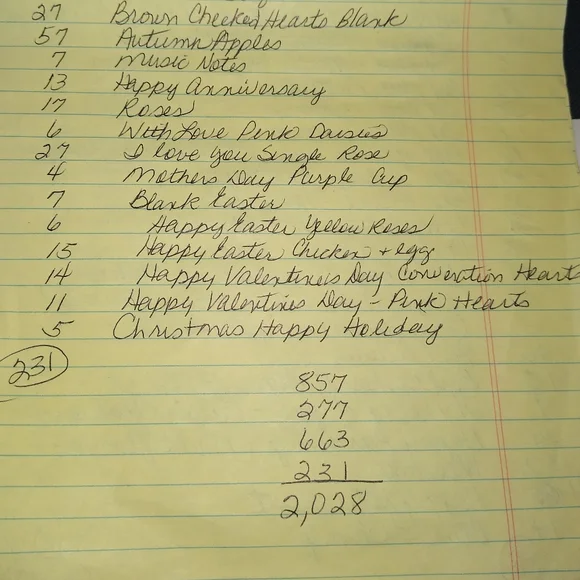 27 Brown Checked Hearts Blank
57 Autumn Apples
7 Music Notes
13 Happy Anniversary
17 Roses
6 With Love Pink Daisies
27 I love you Single Rose
4 Mothers Day Purple Cup
7 Blank Easter
6 Happy Easter Yellow Roses
15 Happy Easter Chicken + egg
14 Happy Valentines Day Converation Hearts
11 Happy Valentines Day - Pink Hearts
5 Christmas Happy Holiday
231
857
277
663
231
2,028